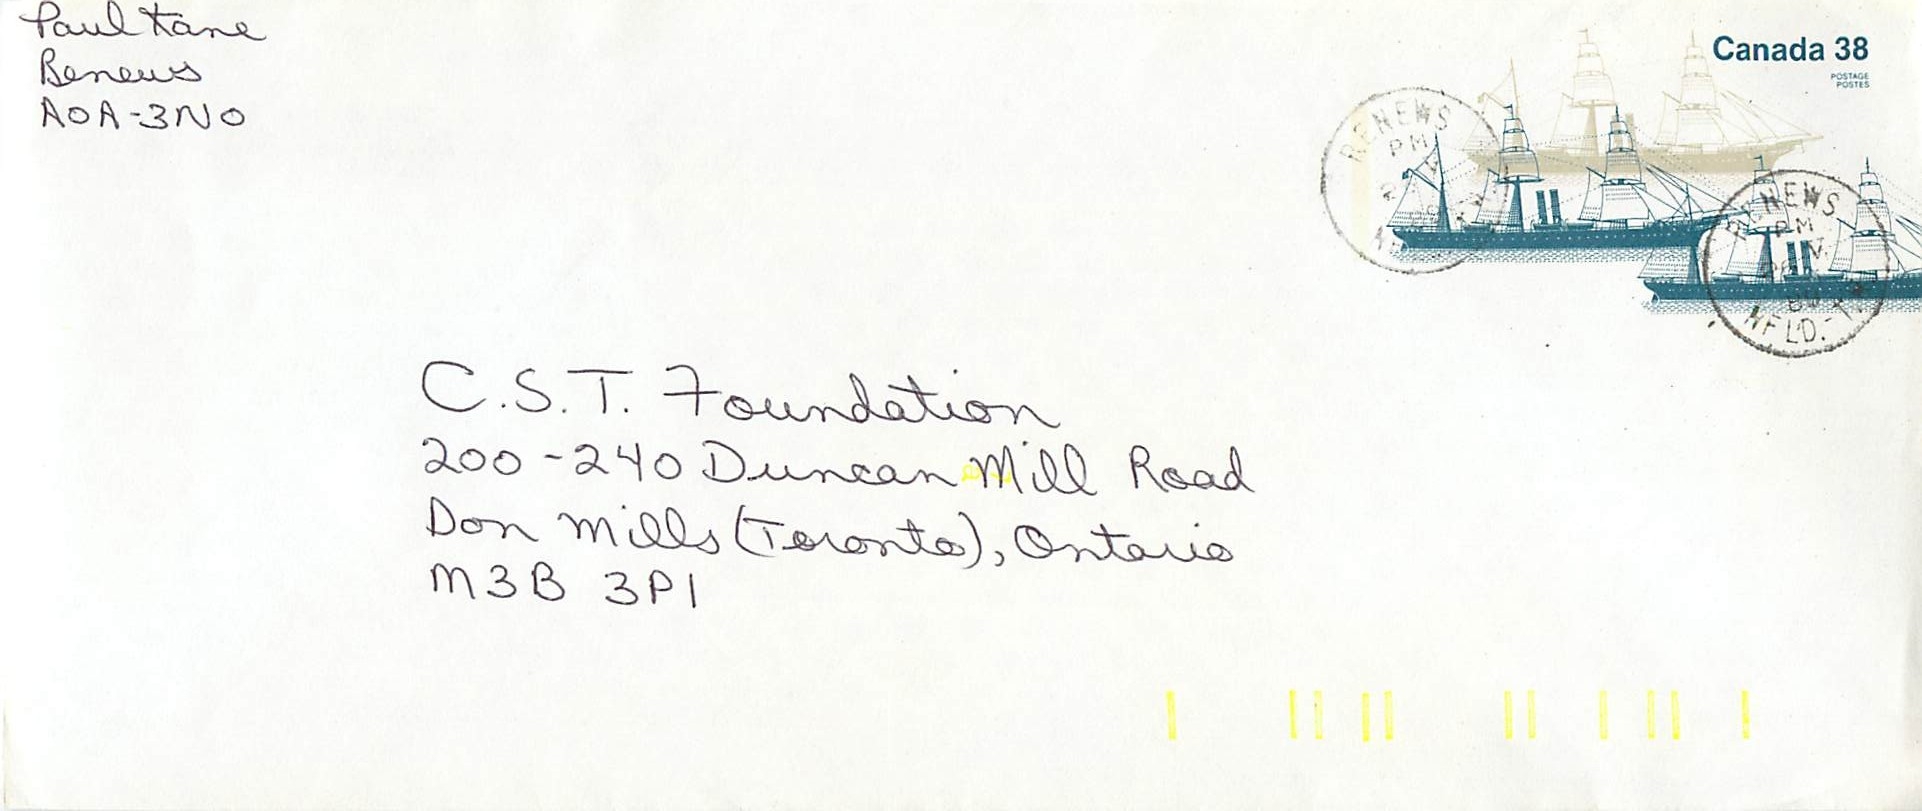 Paul Kane
Renews
A0A-3N0
Canada 38
POSTAGE
POSTES
RENEWS
PM
RENEWS
PM
NFLD.
C.S.T. Foundation
200-240 Duncan Mill Road
Don Mills (Toronto), Ontario
M3B 3P1